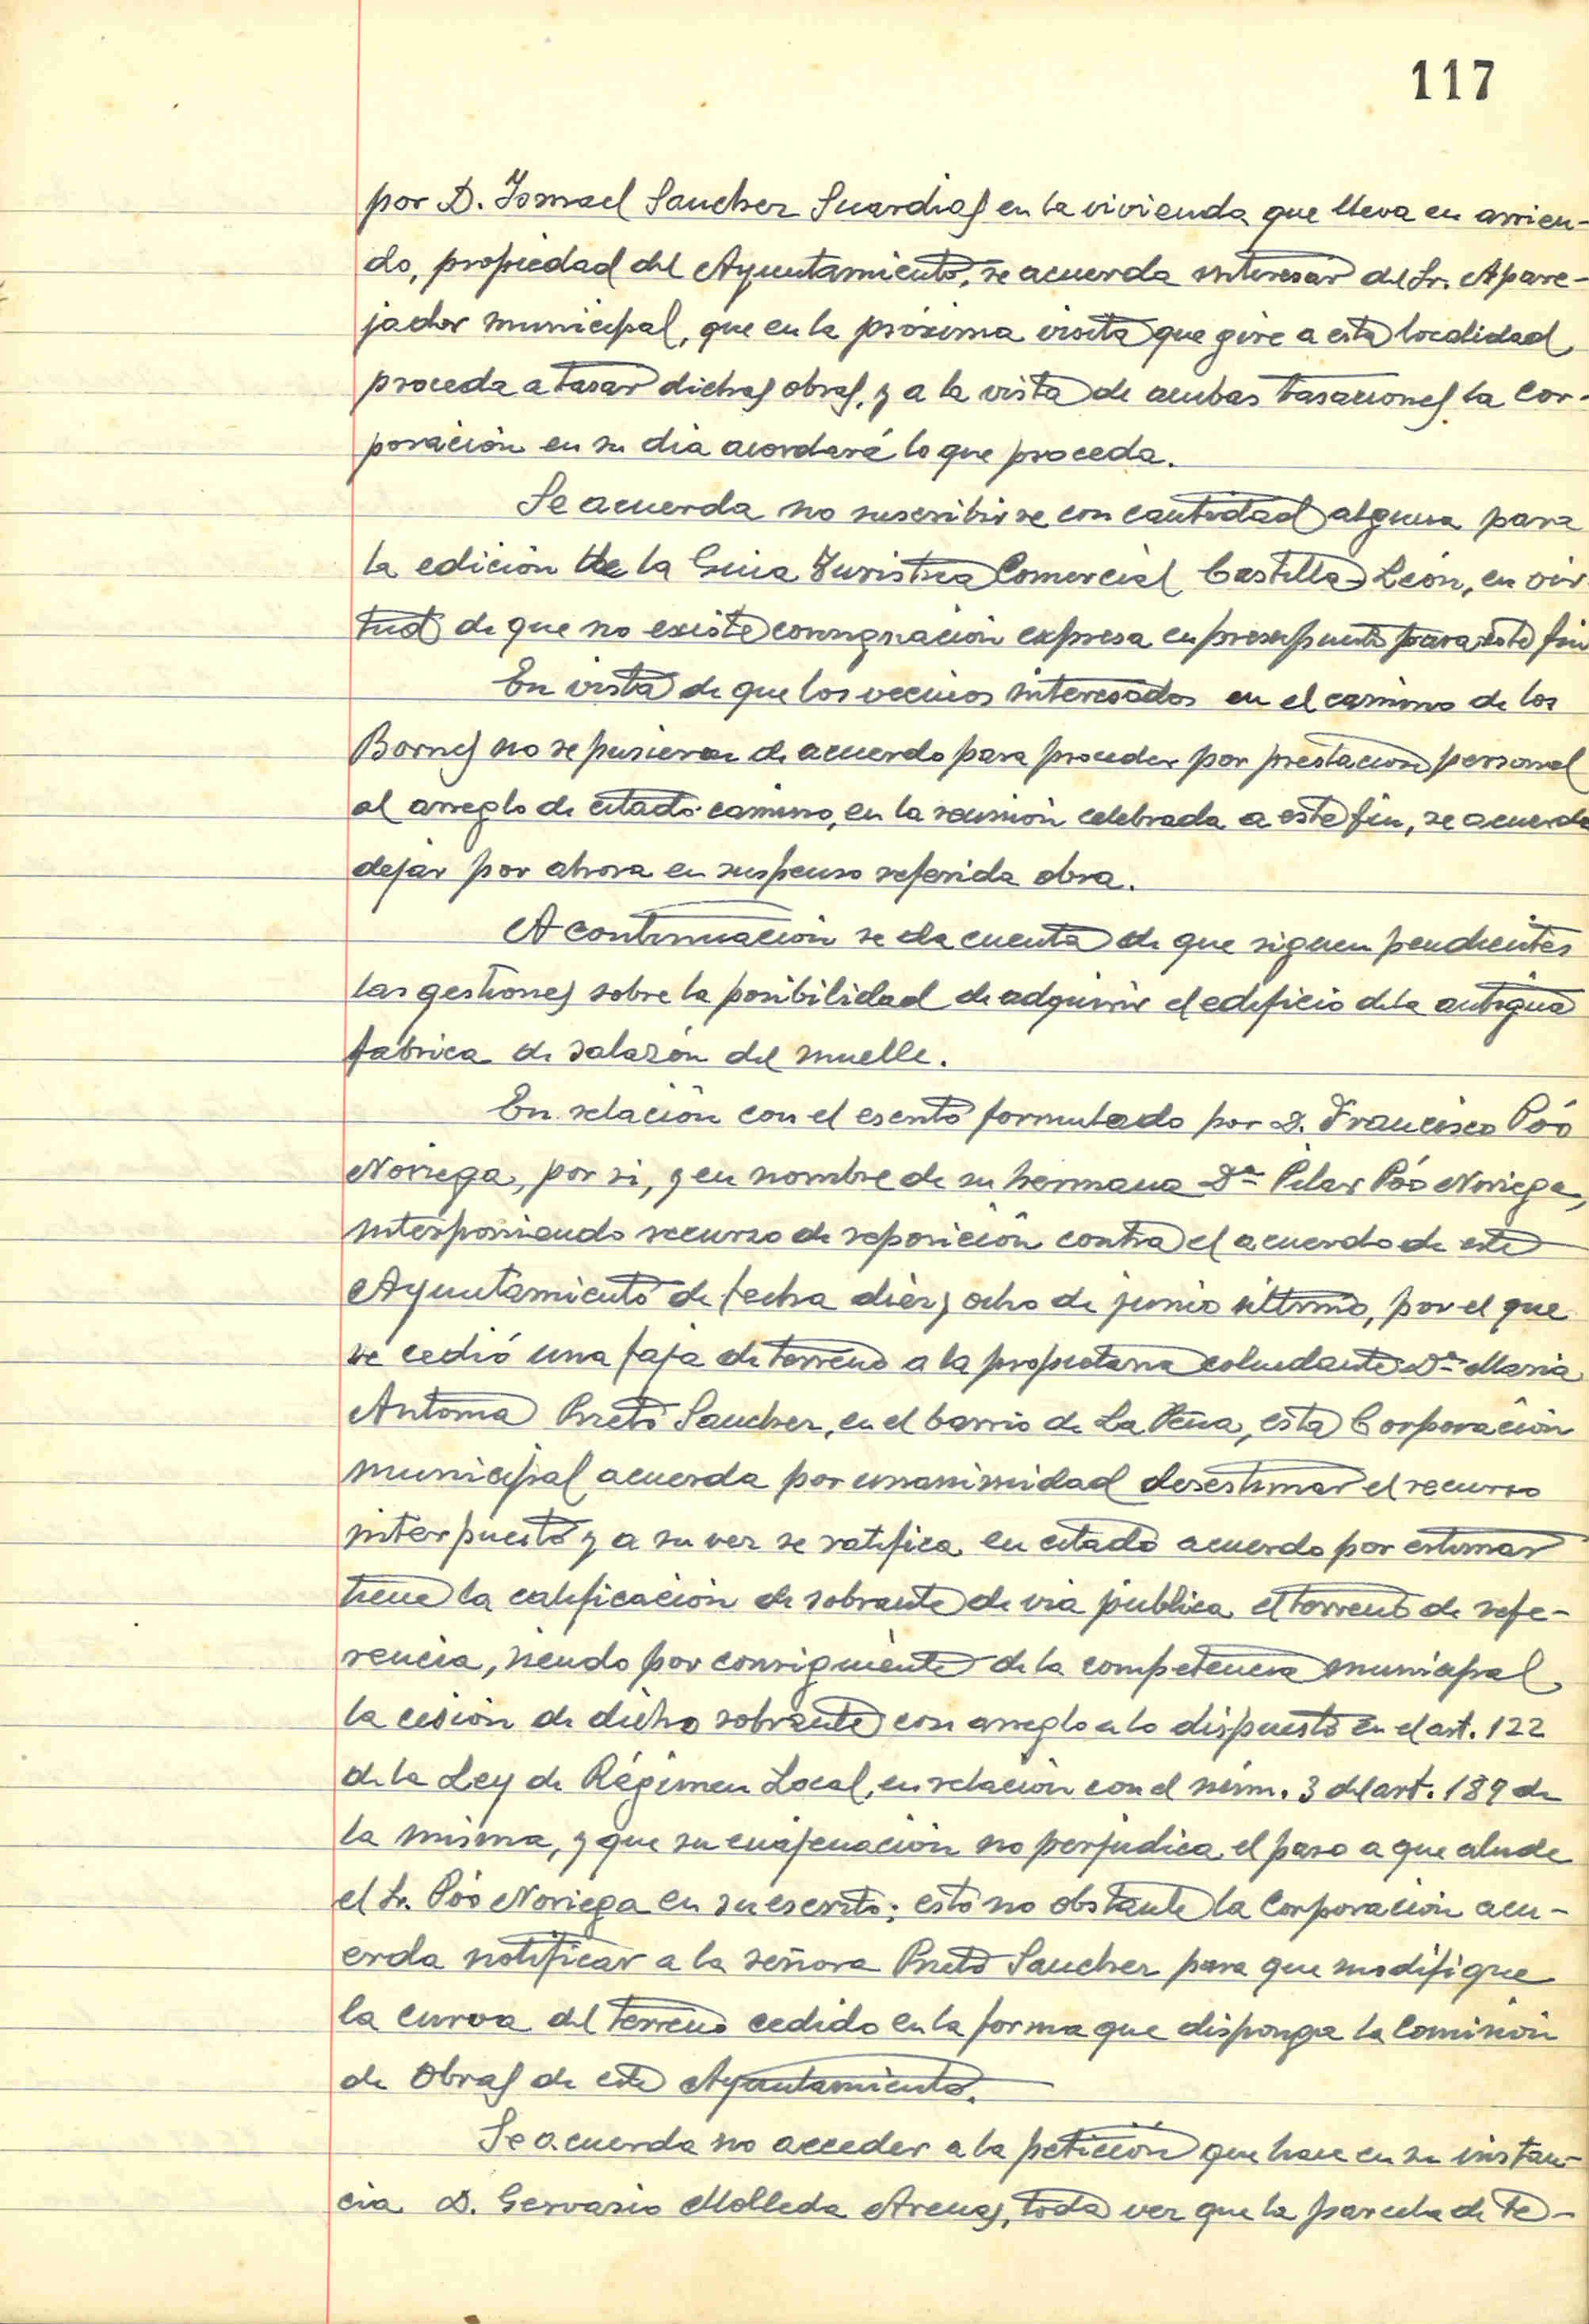 117
por D. Ismael Sanchez Guardias en la vivienda que lleva en arrien-
do, propiedad del Ayuntamiento, se acuerda interesar del Sr. Apare-
jador municipal, que en la próxima visita que gire a esta localidad
proceda a tasar dichas obras, y a la vista de ambas tasaciones la Cor-
poración en su dia acordará lo que proceda.
Se acuerda no suscribirse con cantidad alguna para
la edición de la Guia Turistica Comercial Castilla-León, en vir
tud de que no existe consignación expresa en presupuesto para este fin
En vista de que los vecinos interesados en el camino de los
Bornes no se pusieron de acuerdo para proceder por prestación personal
al arreglo de citado camino, en la reunión celebrada a este fin, se acuerda
dejar por ahora en suspenso referida obra.
A continuación se da cuenta de que siguen pendientes
las gestiones sobre la posibilidad de adquirir el edificio de la antigua
fabrica de salazón del muelle.
En relación con el escrito formulado por D. Francisco Póo
Noriega, por si, y en nombre de su hermana Dª Pilar Póo Noriega,
interponiendo recurso de reposición contra el acuerdo de este
Ayuntamiento de fecha diez y ocho de junio último, por el que
se cedió una faja de terreno a la propietaria colindante Dª Maria
Antonia Prieto Sanchez, en el barrio de La Peña, esta Corporación
municipal acuerda por unanimidad desestimar el recurso
interpuesto y a su vez se ratifica en citado acuerdo por estimar
tiene la calificación de sobrante de via pública el terreno de refe-
rencia, siendo por consiguiente de la competencia municipal
la cesión de dicho sobrante con arreglo a lo dispuesto en el art. 122
de la Ley de Régimen Local, en relación con el núm. 3 del art. 189 de
la misma, y que su enajenación no perjudica el paso a que alude
el Sr. Póo Noriega en su escrito; esto no obstante la Corporación acu-
erda notificar a la señora Prieto Sanchez para que modifique
la curva del terreno cedido en la forma que disponga la Comisión
de Obras de este Ayuntamiento.
Se acuerda no acceder a la petición que hace en su instan-
cia D. Gervasio Molleda Arenas, toda vez que la parcela de te-